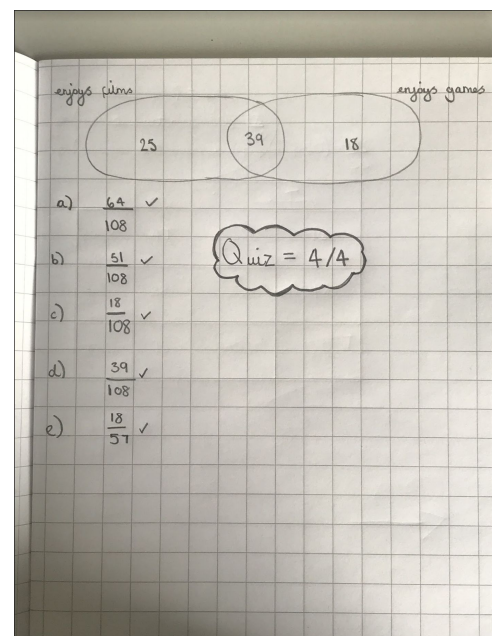 enjoys films enjoys games
25 39 18
a) 64/108 ✓
b) 51/108 ✓
Quiz = 4/4
c) 18/108 ✓
d) 39/108 ✓
e) 18/57 ✓